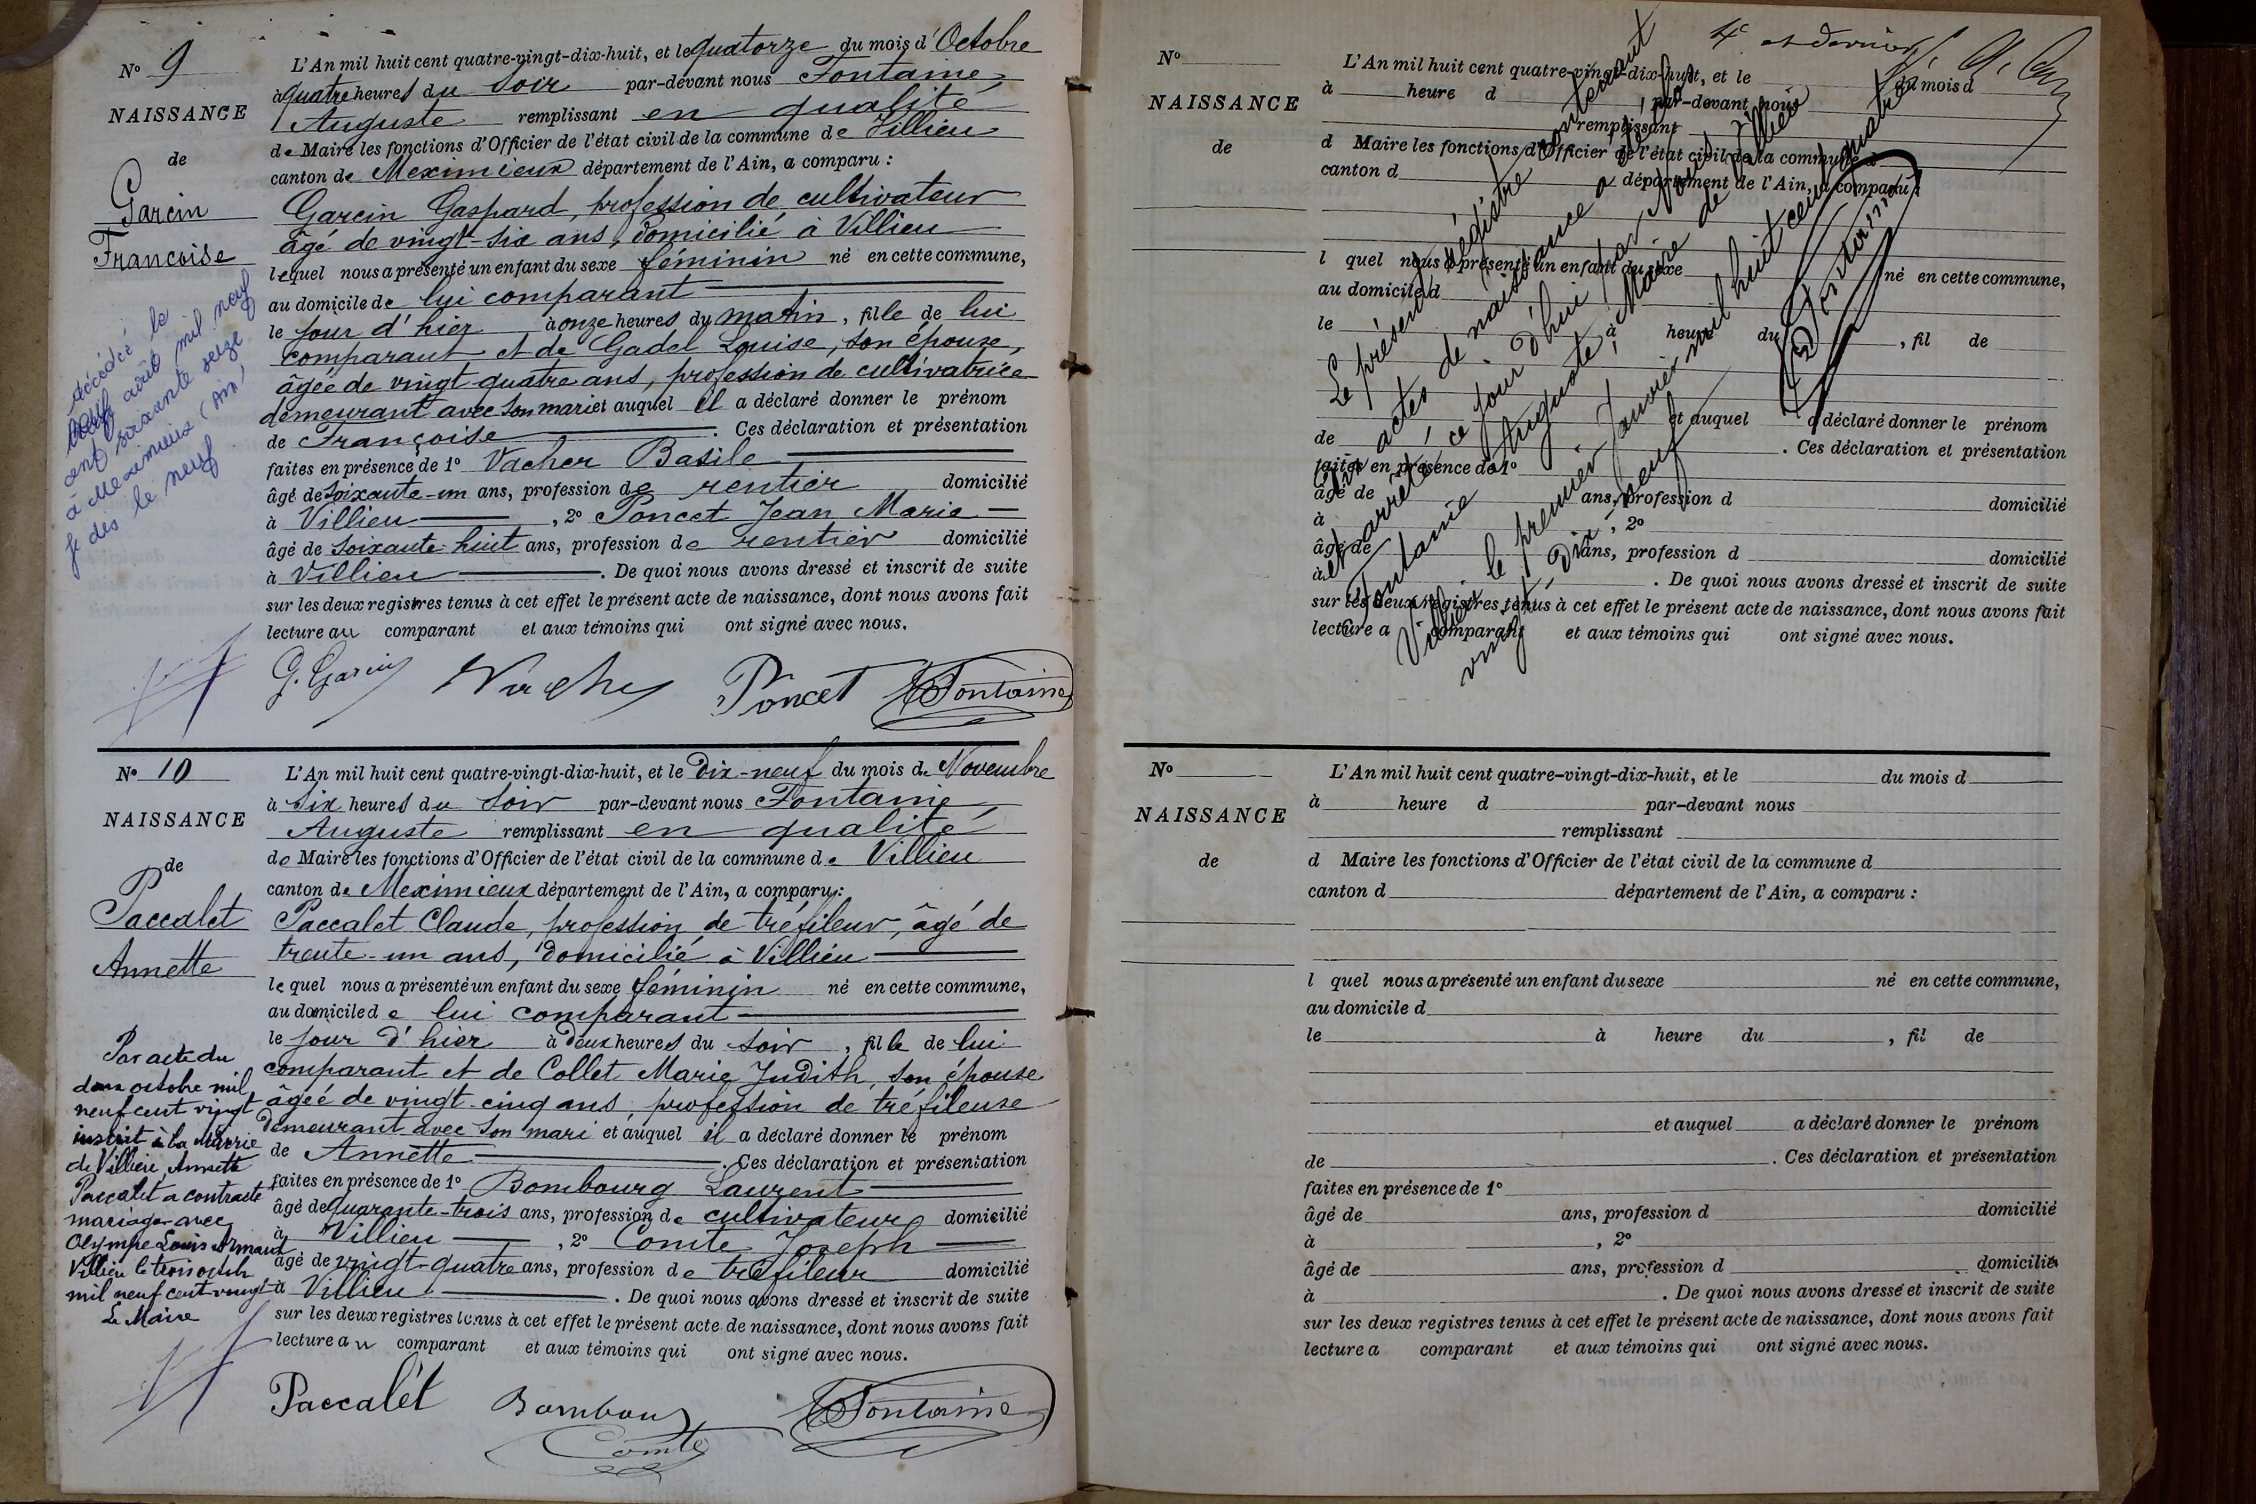 N° 9
NAISSANCE
de
Garcin
Françoise
décédée le
août mil neuf
cent soixante seize
à Meximieux (Ain)
le neuf
L'An mil huit cent quatre-vingt-dix-huit, et le quatorze du mois d'Octobre
à quatre heures du soir par-devant nous Fontaine
Auguste remplissant en qualité
de Maire les fonctions d'Officier de l'état civil de la commune de Villieu
canton de Meximieux département de l'Ain, a comparu :
Garcin Gaspard, profession de cultivateur
âgé de vingt-six ans, domicilié à Villieu
lequel nous a présenté un enfant du sexe féminin né en cette commune,
au domicile de lui comparant
le jour d'hier à onze heures du matin, fille de lui
comparant et de Gadel Louise, son épouse,
âgée de vingt-quatre ans, profession de cultivatrice
demeurant avec son mari et auquel il a déclaré donner le prénom
de Françoise. Ces déclaration et présentation
faites en présence de 1° Vacher Basile
âgé de soixante-un ans, profession de rentier domicilié
à Villieu, 2° Poncet Jean Marie
âgé de soixante-huit ans, profession de rentier domicilié
à Villieu. De quoi nous avons dressé et inscrit de suite
sur les deux registres tenus à cet effet le présent acte de naissance, dont nous avons fait
lecture au comparant et aux témoins qui ont signé avec nous.
G. Garcin Vacher Poncet Fontaine
N° 10
NAISSANCE
de
Paccalet
Annette
Par acte du
deux octobre mil
neuf cent vingt
inscrit à la Mairie
de Villieu, Annette
Paccalet a contracté
mariage avec
Olympe Louis Armand
Villieu le trois octobre
mil neuf cent vingt
Le Maire
L'An mil huit cent quatre-vingt-dix-huit, et le dix-neuf du mois de Novembre
à six heures du soir par-devant nous Fontaine
Auguste remplissant en qualité
de Maire les fonctions d'Officier de l'état civil de la commune de Villieu
canton de Meximieux département de l'Ain, a comparu :
Paccalet Claude, profession de tréfileur, âgé de
trente-un ans, domicilié à Villieu
lequel nous a présenté un enfant du sexe féminin né en cette commune,
au domicile de lui comparant
le jour d'hier à deux heures du soir, fille de lui
comparant et de Collet Marie Judith, son épouse
âgée de vingt-cinq ans, profession de tréfileuse
demeurant avec son mari et auquel il a déclaré donner le prénom
de Annette. Ces déclaration et présentation
faites en présence de 1° Bombourg Laurent
âgé de quarante-trois ans, profession de cultivateur domicilié
à Villieu, 2° Comte Joseph
âgé de vingt-quatre ans, profession de tréfileur domicilié
à Villieu. De quoi nous avons dressé et inscrit de suite
sur les deux registres tenus à cet effet le présent acte de naissance, dont nous avons fait
lecture au comparant et aux témoins qui ont signé avec nous.
Paccalet Bombour Fontaine
Comte
4e et dernier
N°
NAISSANCE
de
L'An mil huit cent quatre-vingt-dix-huit, et le du mois d
à heure d par-devant nous
remplissant
d Maire les fonctions d'Officier de l'état civil de la commune d
canton d département de l'Ain, a comparu :
l quel nous a présenté un enfant du sexe né en cette commune,
au domicile d
le à heure du , fil de
et auquel a déclaré donner le prénom
de . Ces déclaration et présentation
faites en présence de 1°
âgé de ans, profession d domicilié
à , 2°
âgé de ans, profession d domicilié
à . De quoi nous avons dressé et inscrit de suite
sur les deux registres tenus à cet effet le présent acte de naissance, dont nous avons fait
lecture a comparant et aux témoins qui ont signé avec nous.
Le présent registre contenant
dix actes de naissance a été clos
et arrêté ce jour d'hui par Nous
Fontaine Auguste, Maire de Villieu
Villieu le premier Janvier mil huit cent quatre
vingt-dix-neuf
Fontaine
N°
NAISSANCE
de
L'An mil huit cent quatre-vingt-dix-huit, et le du mois d
à heure d par-devant nous
remplissant
d Maire les fonctions d'Officier de l'état civil de la commune d
canton d département de l'Ain, a comparu :
l quel nous a présenté un enfant du sexe né en cette commune,
au domicile d
le à heure du , fil de
et auquel a déclaré donner le prénom
de . Ces déclaration et présentation
faites en présence de 1°
âgé de ans, profession d domicilié
à , 2°
âgé de ans, profession d domicilié
à . De quoi nous avons dressé et inscrit de suite
sur les deux registres tenus à cet effet le présent acte de naissance, dont nous avons fait
lecture a comparant et aux témoins qui ont signé avec nous.